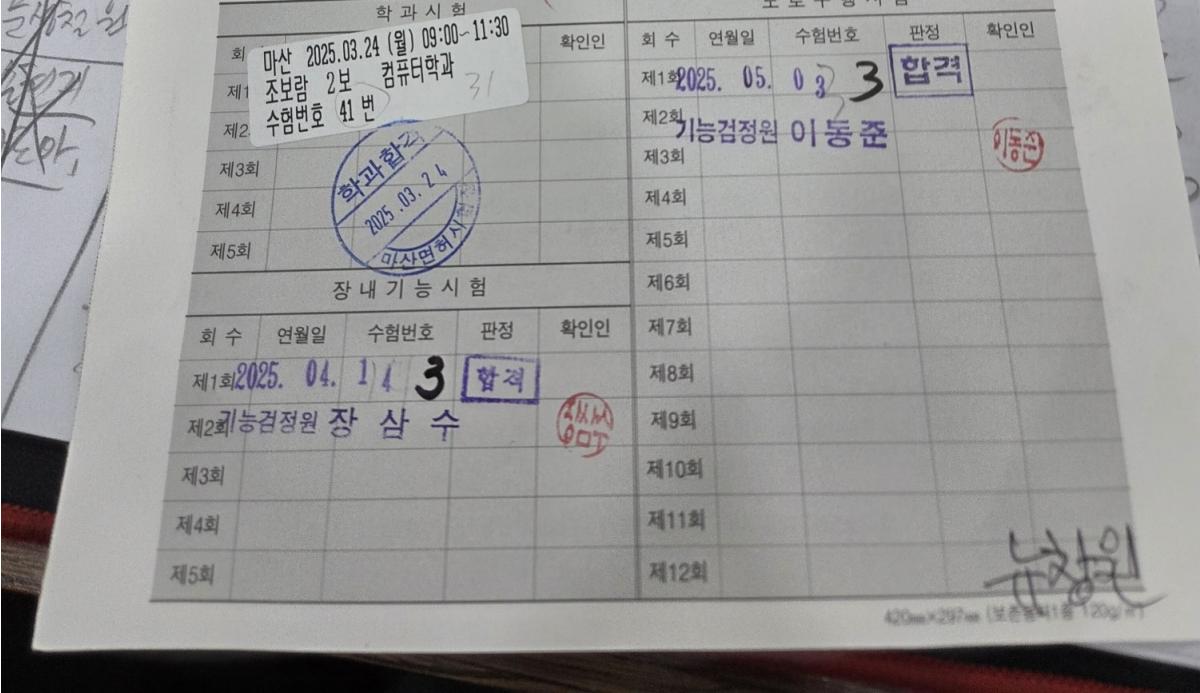 학 과 시 험
마산 2025.03.24 (월) 09:00~11:30
조보람 2보 컴퓨터학과
수험번호 41 번
31
회
확인인
제1
제2
제3회
제4회
제5회
학과합격
2025.03.24
마산면허시험장
장 내 기 능 시 험
회 수 연월일 수험번호 판정 확인인
제1회 2025. 04. 14 3 합격
제2회 기능검정원 장 삼 수
제3회
제4회
제5회
도 로 주 행 시 험
회 수 연월일 수험번호 판정 확인인
제1회 2025. 05. 03 3 합격
제2회 기능검정원 이 동 준
이동준
제3회
제4회
제5회
제6회
제7회
제8회
제9회
제10회
제11회
제12회
420㎜×297㎜ (보존용지1종 120g/㎡)